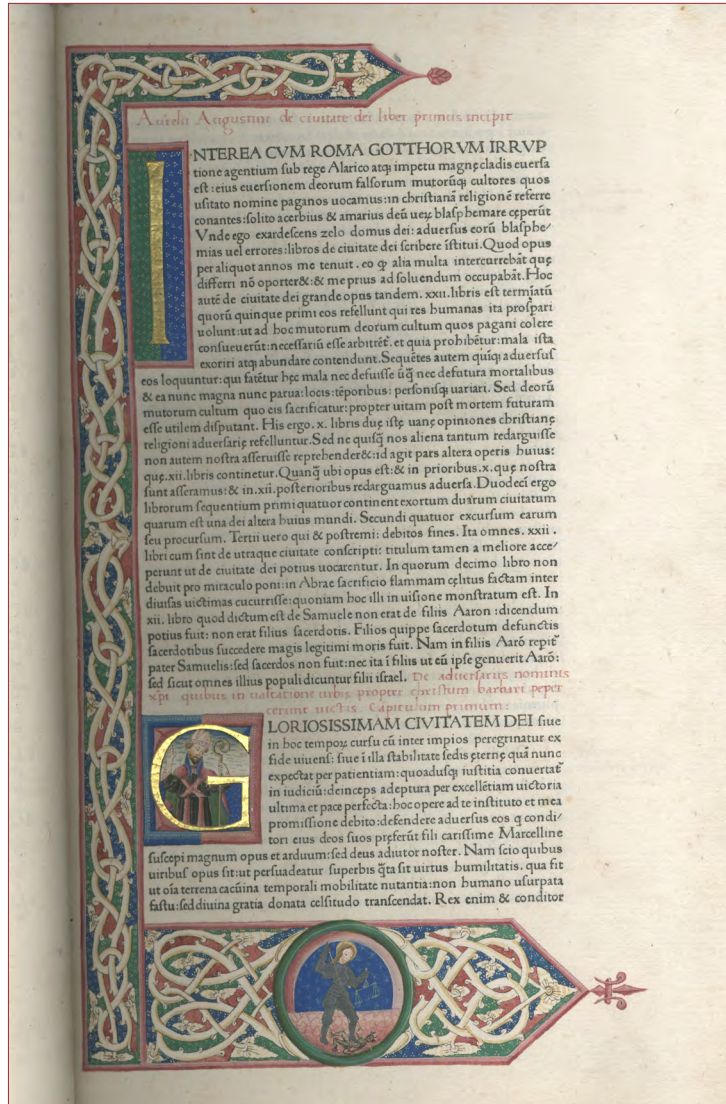 Aurelii Augustini de ciuitate dei liber primus incipit
INTEREA CVM ROMA GOTTHORVM IRRVP
tione agentium sub rege Alarico atq; impetu magnę cladis euersa
est: eius euersionem deorum falsorum mutorūq; cultores quos
usitato nomine paganos uocamus: in christianā religionē referre
conantes: solito acerbius & amarius deū ueꝝ blasphemare cęperūt
Vnde ego exardescens zelo domus dei: aduersus eorū blasphe⸗
mias uel errores: libros de ciuitate dei scribere īstitui. Quod opus
per aliquot annos me tenuit. eo ꝙ alia multa intercurrebāt quę
differri nō oporter&: & me prius ad soluendum occupabāt. Hoc
autē de ciuitate dei grande opus tandem. xxii. libris est termīatū
quorū quinque primi eos refellunt qui res humanas ita prosꝑari
uolunt: ut ad hoc mutorum deorum cultum quos pagani colere
consueuerūt: necessariū esse arbitrēt᷑. et quia prohibētur: mala ista
exoriri atq; abundare contendunt. Sequētes autem quīq; aduersus
eos loquuntur: qui fatētur hęc mala nec defuisse ūq̄ nec defutura mortalibus
& ea nunc magna nunc parua: locis: tēporibus: personisq; uariari. Sed deorū
mutorum cultum quo eis sacrificatur: propter uitam post mortem futuram
esse utilem disputant. His ergo. x. libris duę istę uanę opiniones christianę
religioni aduersarię refelluntur. Sed ne quisq̄ nos aliena tantum redarguisse
non autem nostra asseruisse reprehender&: id agit pars altera operis huius:
quę. xii. libris continetur. Quanq̄ ubi opus est: & in prioribus. x. quę nostra
sunt asseramus: & in. xii. posterioribus redarguamus aduersa. Duodecī ergo
librorum sequentium primi quatuor continent exortum duarum ciuitatum
quarum est una dei altera huius mundi. Secundi quatuor excursum earum
seu procursum. Tertii uero qui & postremi: debitos fines. Ita omnes. xxii.
libri cum sint de utraque ciuitate conscripti: titulum tamen a meliore acce⸗
perunt ut de ciuitate dei potius uocarentur. In quorum decimo libro non
debuit pro miraculo poni: in Abrae sacrificio flammam cęlitus factam inter
diuisas uictimas cucurrisse: quoniam hoc illi in uisione monstratum est. In
xii. libro quod dictum est de Samuele non erat de filiis Aaron: dicendum
potius fuit: non erat filius sacerdotis. Filios quippe sacerdotum defunctis
sacerdotibus succedere magis legitimi moris fuit. Nam in filiis Aarō repit᷑
pater Samuelis: sed sacerdos non fuit: nec ita ī filiis ut eū ipse genuerit Aarō:
sed sicut omnes illius populi dicuntur filii israel. De aduersariis nominis
xp̄i quibus in uastatione urbis propter christum barbari peper
cerunt uictis. Capitulum primum:
GLORIOSISSIMAM CIVITATEM DEI siue
in hoc tempoꝝ cursu cū inter impios peregrinatur ex
fide uiuens: siue ī illa stabilitate sedis ęternę quā nunc
expectat per patientiam: quoadusq; iustitia conuertat᷑
in iudiciū: deinceps adeptura per excellētiam uictoria
ultima et pace perfecta: hoc opere ad te instituto et mea
promissione debito: defendere aduersus eos q condi⸗
tori eius deos suos pręferūt fili carissime Marcelline
suscepi magnum opus et arduum: sed deus adiutor noster. Nam scio quibus
uiribus opus sit: ut persuadeatur superbis q̄ta sit uirtus humilitatis. qua fit
ut oīa terrena cacūina temporali mobilitate nutantia: non humano usurpata
fastu: sed diuina gratia donata celsitudo transcendat. Rex enim & conditor